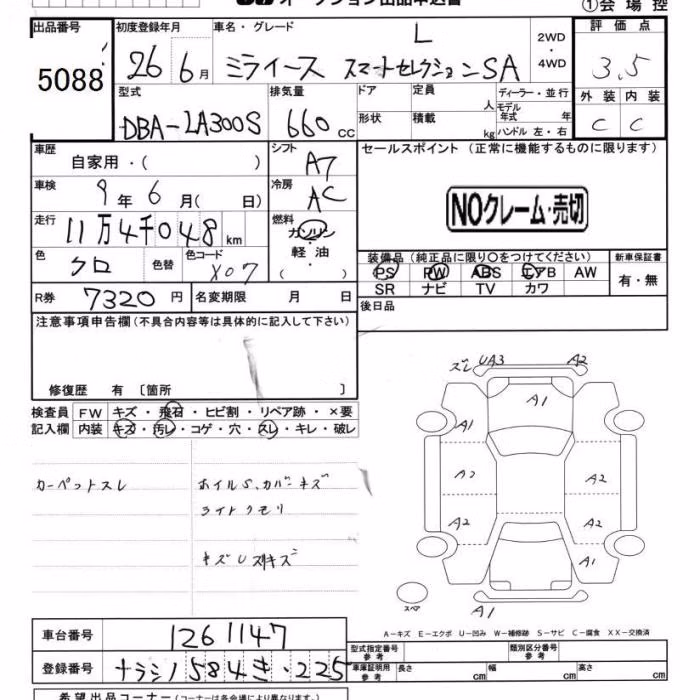 オークション出品申込書
①会場控
出品番号 初度登録年月 車名・グレード 2WD・4WD 評価点
5088 26年6月 ミライース L スマートセレクションSA 3.5
型式 排気量 ドア 定員 人 ディーラー・並行 外装 内装
DBA-LA300S 660 CC 形状 積載 kg モデル年式 年 ハンドル 左・右 C C
車歴 自家用・( ) シフト AT
セールスポイント (正常に機能するものに限ります)
車検 9年6月( 日) 冷房 AC
NOクレーム・売切
走行 11万4千048km 燃料 ガソリン・軽油・( )
色 クロ 色替 色コード X07
装備品(純正品に限り○をつけてください) 新車保証書
PS PW ABS エアB AW 有・無
SR ナビ TV カワ
R券 7320円 名変期限 月 日
後日品
注意事項申告欄(不具合内容等は具体的に記入して下さい)
修復歴 有〔箇所 〕
検査員記入欄 FW キズ・飛石・ヒビ割・リペア跡・×要
内装 キズ・汚レ・コゲ・穴・スレ・キレ・破レ
カーペットスレ ホイルS、カバーキズ
ライトクモリ
キズUスリキズ
ズレ UA3 A2
A1
A1
A2 A2
A2 A2
A1
スペア A1
A-キズ E-エクボ U-凹み W-補修跡 S-サビ C-腐食 XX-交換済
車台番号 1261147
型式指定番号 参考 類別区分番号 参考
登録番号 ナラシノ584き・225
車庫証明用 参考 長さ cm 幅 cm 高さ cm
希望出品コーナー(コーナーは各会場により異なります。)